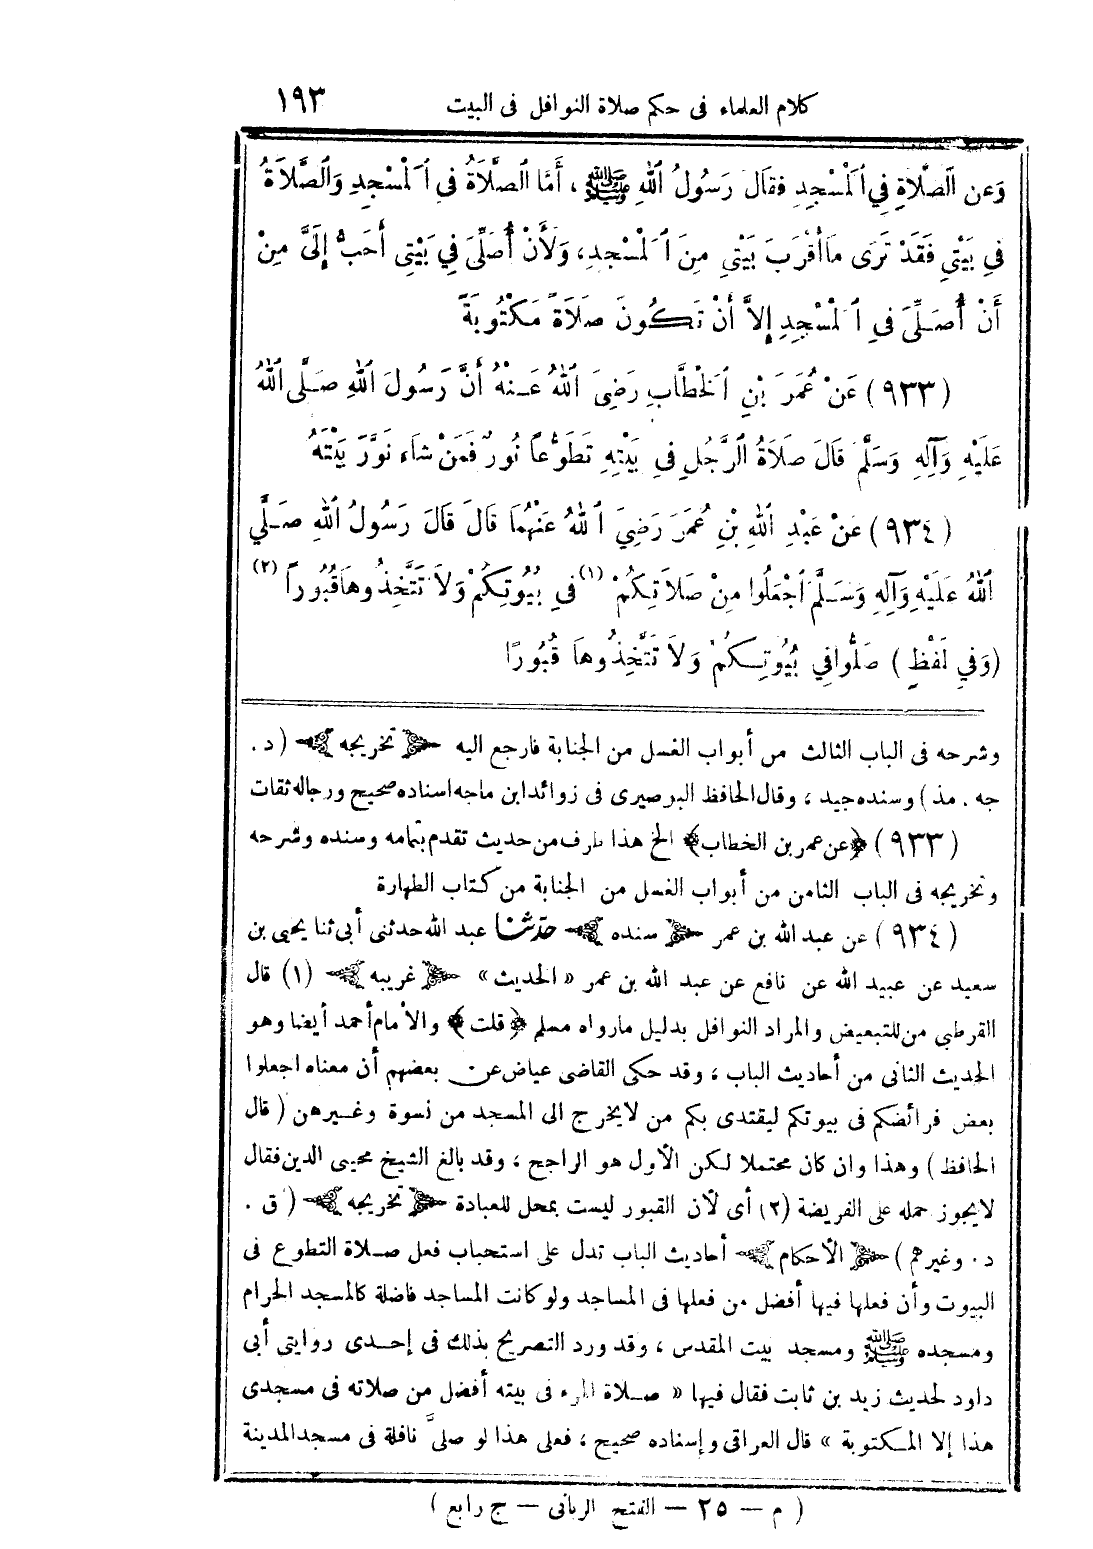 كلام العلماء فى حكم صلاة النوافل فى البيت ١٩٣
وَعن الصَّلاَةِ فِي الْمَسْجِدِ فقَالَ رَسُولُ اللهِ ﷺ ، أَمَّا الصَّلاَةُ فِي الْمَسْجِدِ وَالصَّلاَةُ
فِي بَيْتِي فَقَدْ تَرَى مَا أَقْرَبَ بَيْتِي مِنَ الْمَسْجِدِ، وَلَأَنْ أُصَلِّيَ فِي بَيْتِي أَحَبُّ إِلَيَّ مِنْ
أَنْ أُصَلِّيَ فِي الْمَسْجِدِ إِلاَّ أَنْ تَكُونَ صَلاَةً مَكْتُوبَةً
(٩٣٣) عَنْ عُمَرَ بْنِ الْخَطَّابِ رَضِيَ اللهُ عَنْهُ أَنَّ رَسُولَ اللهِ صَلَّى اللهُ
عَلَيْهِ وَآلِهِ وَسَلَّمَ قَالَ صَلاَةُ الرَّجُلِ فِي بَيْتِهِ تَطَوُّعاً نُورٌ فَمَنْ شَاءَ نَوَّرَ بَيْتَهُ
(٩٣٤) عَنْ عَبْدِ اللهِ بْنِ عُمَرَ رَضِيَ اللهُ عَنْهُمَا قَالَ قَالَ رَسُولُ اللهِ صَلَّي
اللهُ عَلَيْهِ وَآلِهِ وَسَلَّمَ اجْعَلُوا مِنْ صَلاَتِكُمْ (١) فِي بُيُوتِكُمْ وَلاَ تَتَّخِذُوهَا قُبُورًا (٢)
(وَفِي لَفْظٍ) صَلُّوا فِي بُيُوتِكُمْ وَلاَ تَتَّخِذُوهَا قُبُورًا
وشرحه فى الباب الثالث من أبواب الغسل من الجنابة فارجع اليه ﴿ تخريجه ﴾ (د .
جه . مذ) وسنده جيد ، وقال الحافظ البوصيرى فى زوائد ابن ماجه اسناده صحيح ورجاله ثقات
(٩٣٣) ﴿عن عمر بن الخطاب﴾ الخ هذا طرف من حديث تقدم بتمامه وسنده وشرحه
وتخريجه فى الباب الثامن من أبواب الغسل من الجنابة من كتاب الطهارة
(٩٣٤) عن عبد الله بن عمر ﴿ سنده ﴾ حدّثنا عبد الله حدثنى أبى ثنا يحيى بن
سعيد عن عبيد الله عن نافع عن عبد الله بن عمر « الحديث » ﴿ غريبه ﴾ (١) قال
القرطبى من للتبعيض والمراد النوافل بدليل ما رواه مسلم ﴿ قلت ﴾ والأمام أحمد أيضا وهو
الحديث الثانى من أحاديث الباب ، وقد حكى القاضى عياض عن بعضهم أن معناه اجعلوا
بعض فرائضكم فى بيوتكم ليقتدى بكم من لا يخرج الى المسجد من نسوة وغيرهن (قال
الحافظ) وهذا وان كان محتملا لكن الأول هو الراجح ، وقد بالغ الشيخ محيى الدين فقال
لا يجوز حمله على الفريضة (٢) أى لأن القبور ليست بمحل للعبادة ﴿ تخريجه ﴾ (ق .
د . وغيرهم) ﴿ الأحكام ﴾ أحاديث الباب تدل على استحباب فعل صلاة التطوع فى
البيوت وأن فعلها فيها أفضل من فعلها فى المساجد ولو كانت المساجد فاضلة كالمسجد الحرام
ومسجده ﷺ ومسجد بيت المقدس ، وقد ورد التصريح بذلك فى إحدى روايتى أبى
داود لحديث زيد بن ثابت فقال فيها « صلاة المرء فى بيته أفضل من صلاته فى مسجدى
هذا إلا المكتوبة » قال العراقى وإسناده صحيح ، فعلى هذا لو صلىَّ نافلة فى مسجد المدينة
(م — ٢٥ — الفتح الربانى — ج رابع)